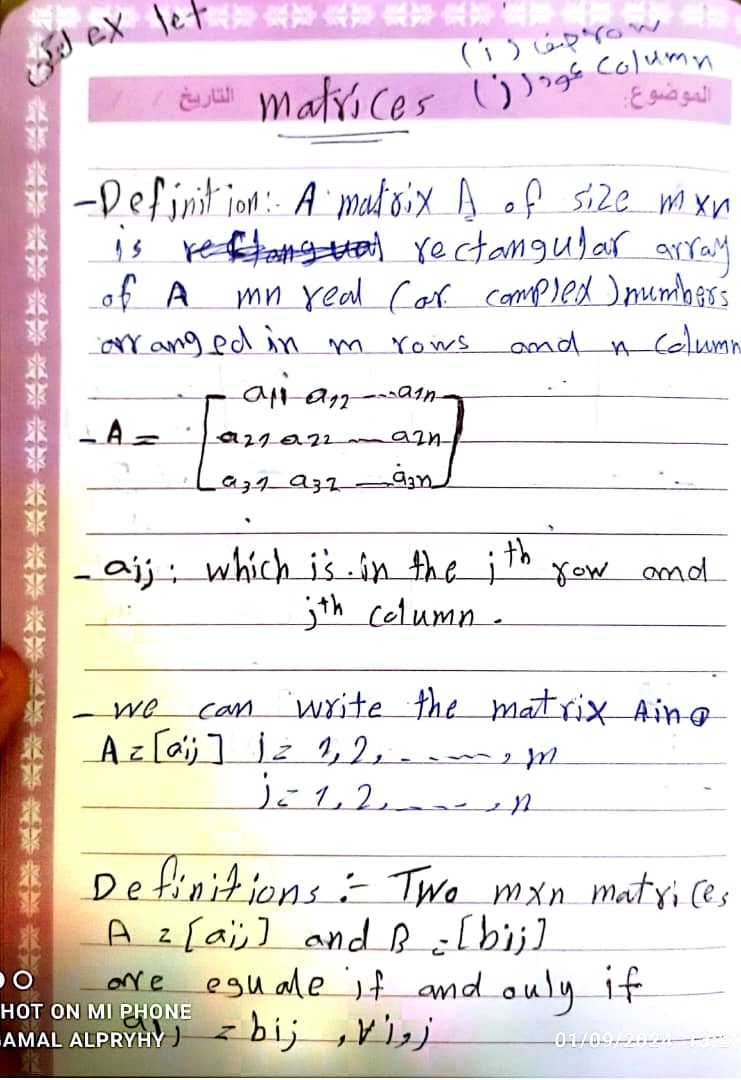 ex let
صف row (i)
عمود column (j)
الموضوع: matrices التاريخ / /
-Definition:- A matrix A of size mxn
is rectangular array
of A mn real (or complex) numbers
arranged in m rows and n column
- A = [a11 a12 ---a1n
a21 a22 — a2n
a31 a32 — a3n]
- aij: which is in the ith row and
jth column.
- we can write the matrix A in
A = [aij] i = 1,2, - - - -, m
j = 1,2, - - - -, n
Definitions :- Two mxn matrices
A = [aij] and B = [bij]
are equale if and only if
aij = bij , ∀i,j
HOT ON MI PHONE
AMAL ALPRYHY
01/09/2024